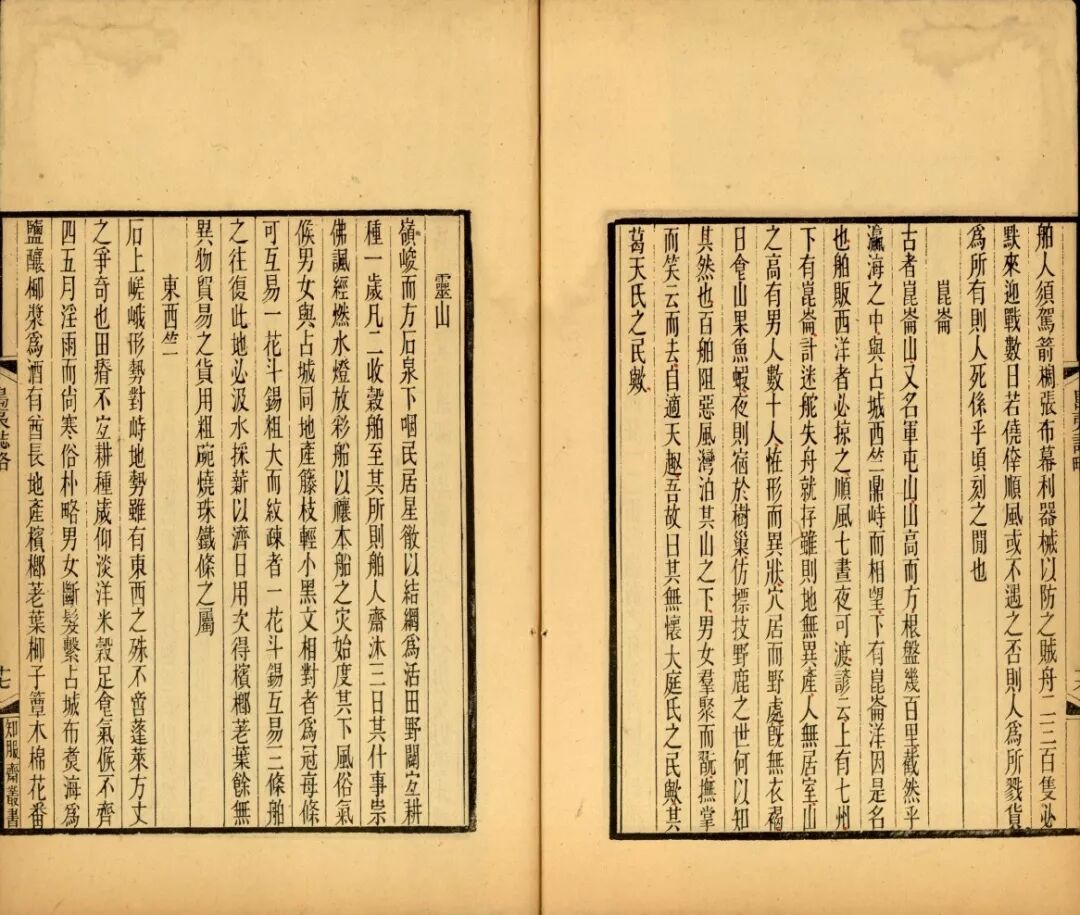 舶人須駕箭棚張布幕利器械以防之賊舟二三百隻必
默來迎戰數日若僥倖順風或不遇之否則人爲所戮貨
爲所有則人死係乎頃刻之閒也
崑崙
古者崑崙山又名軍屯山山高而方根盤幾百里截然乎
瀛海之中與占城西竺鼎峙而相望下有崑崙洋因是名
也舶販西洋者必掠之順風七晝夜可渡諺云上有七州
下有崑崙計迷舵失舟就存雖則地無異產人無居室山
之高有男人數十人怪形而異狀穴居而野處旣無衣褐
日食山果魚蝦夜則宿於樹巢仿摽技野鹿之世何以知
其然也百舶阻惡風灣泊其山之下男女羣聚而翫撫掌
而笑云而去自適天趣吾故曰其無懷大庭氏之民歟其
葛天氏之民歟
靈山
嶺峻而方石泉下咽民居星散以結網爲活田野闢宐耕
種一歲凡二收穀舶至其所則舶人齋沐三日其什事崇
佛諷經燃水燈放彩船以禳本船之灾始度其下風俗氣
候男女與占城同地產籐枝輕小黑文相對者爲冠每條
可互易一花斗錫粗大而紋疎者一花斗錫互易三條舶
之往復此地必汲水採薪以濟日用次得檳榔荖葉餘無
異物貿易之貨用粗碗燒珠鐵條之屬
東西竺
石上嵯峨形勢對峙地勢雖有東西之殊不啻蓬萊方丈
之爭奇也田瘠不宐耕種歲仰淡洋米穀足食氣候不齊
四五月淫雨而尙寒俗朴略男女斷髮繫占城布煑海爲
鹽釀椰漿爲酒有酋長地產檳榔荖葉椰子簟木棉花番
島夷誌略
十七
知服齋叢書